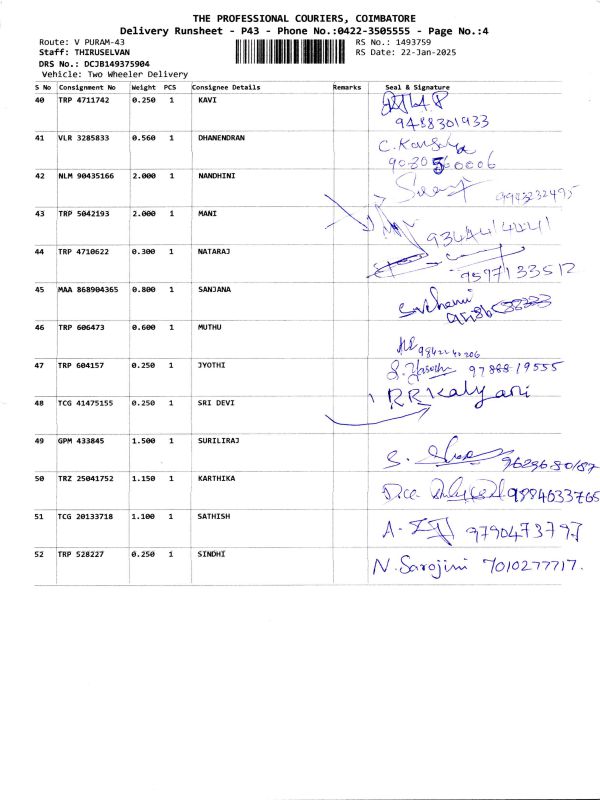 THE PROFESSIONAL COURIERS, COIMBATORE
Delivery Runsheet - P43 - Phone No.:0422-3505555 - Page No.:4
Route: V PURAM-43 RS No.: 1493759
Staff: THIRUSELVAN RS Date: 22-Jan-2025
DRS No.: DCJB149375904
Vehicle: Two Wheeler Delivery
S No Consignment No Weight PCS Consignee Details Remarks Seal & Signature
40 TRP 4711742 0.250 1 KAVI
9488301933
41 VLR 3285833 0.560 1 DHANENDRAN
C.
42 NLM 90435166 2.000 1 NANDHINI
9993232495
43 TRP 5042193 2.000 1 MANI
44 TRP 4710622 0.300 1 NATARAJ
9597133512
45 MAA 868904365 0.800 1 SANJANA
46 TRP 606473 0.600 1 MUTHU
47 TRP 604157 0.250 1 JYOTHI
97888-19555
48 TCG 41475155 0.250 1 SRI DEVI RRKalyani
49 GPM 433845 1.500 1 SURILIRAJ
S. 9629680187
50 TRZ 25041752 1.150 1 KARTHIKA
9994633765
51 TCG 20133718 1.100 1 SATHISH
A. 9790473797
52 TRP 528227 0.250 1 SINDHI N. Sarojini 7010277717.